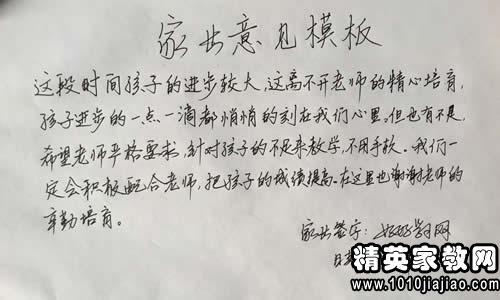 家长意见模板
这段时间孩子的进步较大,这离不开老师的精心培育,
孩子进步的一点一滴都悄悄的刻在我们心里。但也有不足,
希望老师严格要求,针对孩子的不足来教学,不用手软。我们一
定会积极配合老师,把孩子的成绩提高。在这里也谢谢老师的
辛勤培育。
家长签字:好好学习网
日
精英家教网
www.1010jiajiao.com